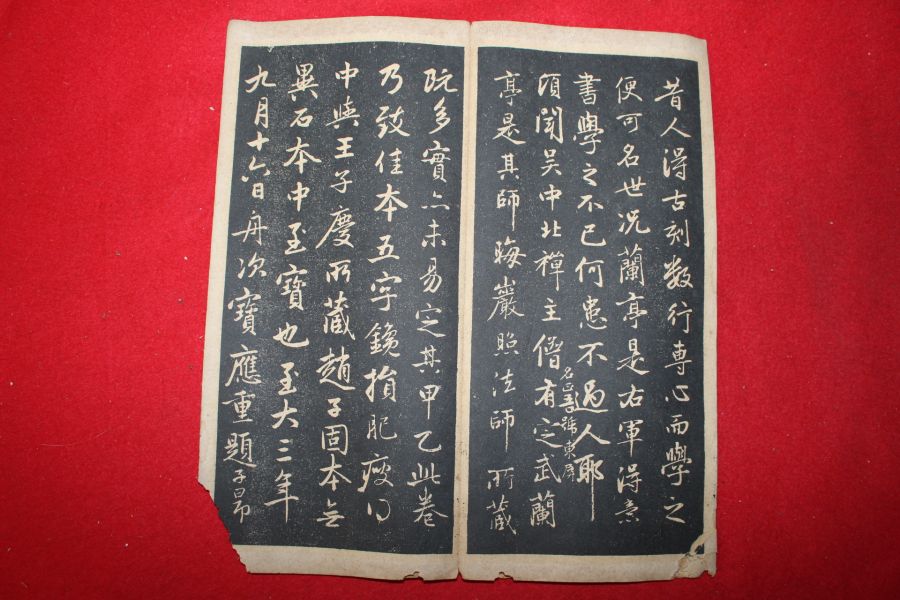 昔人得古刻数行専心而學之
便可名世况蘭亭是右軍得意
書學之不已何患不過人耶
頃聞吴中北禪主僧有定武蘭
名正吾號東屏
亭是其師晦巖照法師所藏
既多實亦未易定其甲乙此卷
乃致佳本五字鑱損肥瘦得
中與王子慶所藏趙子固本無
異石本中至寶也至大三年
九月十六日舟次寶應重題子昂